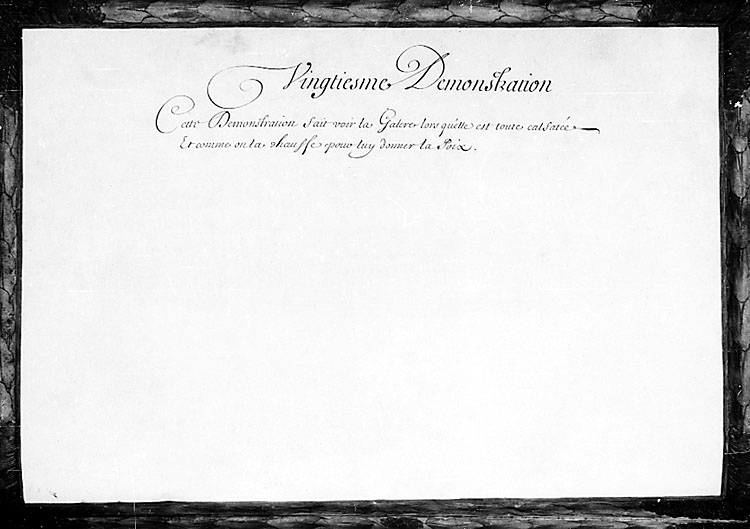 Vingtiesme Demonstration
Cette Demonstration fait voir la Galere lors qu'elle est toute calfatée
Et comme on la chauffe pour luy donner la Poix.